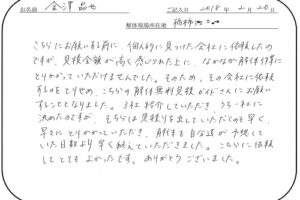 お名前 金澤 晶世 ご記入日 2018 年 2 月 20 日
解体現場所在地 柏市
こちらにお願いする前に、個人的に見つけた会社に依頼したの
ですが、見積金額が高く感じられた上に、なかなか解体作業に
とりかかっていただけませんでした。そのため、その会社に依頼
するのをとりやめ、こちらの解体無料見積ガイドさんにお願い
することとなりました。3社紹介していただき、うち一社に
決めたのですが、そちらは見積りを出していただくのも早く、
早々にとりかかっていただき、解体も自分達が予想して
いた日数より早く終えていただきました。こちらに依頼
してとてもよかったです。ありがとうございました。